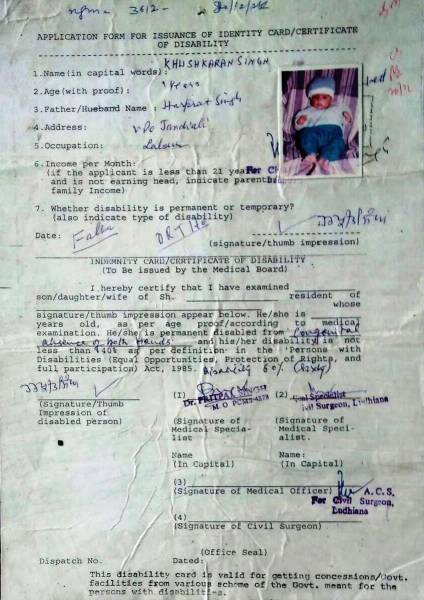 3612
APPLICATION FORM FOR ISSUANCE OF IDENTITY CARD/CERTIFICATE
OF DISABILITY
1.Name(in capital words): KHUSHKARAN SINGH
2.Age(with proof): years
3.Father/Husband Name : Singh
4.Address: V.Po Jandiali
5.Occupation: Labour
6.Income per Month:
(if the applicant is less than 21 years
and is not earning head, indicate parent
family Income)
7. Whether disability is permanent or temporary?
(also indicate type of disability)
Date:
(signature/thumb impression)
INDEMNITY CARD/CERTIFICATE OF DISABILITY
(To be issued by the Medical Board)
I hereby certify that I have examined
son/daughter/wife of Sh. resident of
whose
signature/thumb impression appear below. He/she is
years old, as per age proof/according to medical
examination. He/she is permanent disabled from Congenital
absence of both Hands and his/her disability is not
less than 40% as per definition in the 'Persons with
Disabilities (Equal Opportunities, Protection of Rights, and
full participation) Act, 1985. Disability 60% (Sixty)
(1) (2)
Dr. PRITPAL SINGH
M.O PCMS
Specialist
Civil Surgeon, Ludhiana
(Signature/Thumb
Impression of
disabled person)
(Signature of
Medical Specia-
list
(Signature of
Medical Speci-
alist.
Name:
(In Capital)
Name:
(In Capital)
(3)
(Signature of Medical Officer) A.C.S.
For Civil Surgeon,
Ludhiana
(4)
(Signature of Civil Surgeon)
(Office Seal)
Dispatch No. Dated:
This disability card is valid for getting concessions/Govt.
facilities from various scheme of the Govt. meant for the
persons with disabilities.